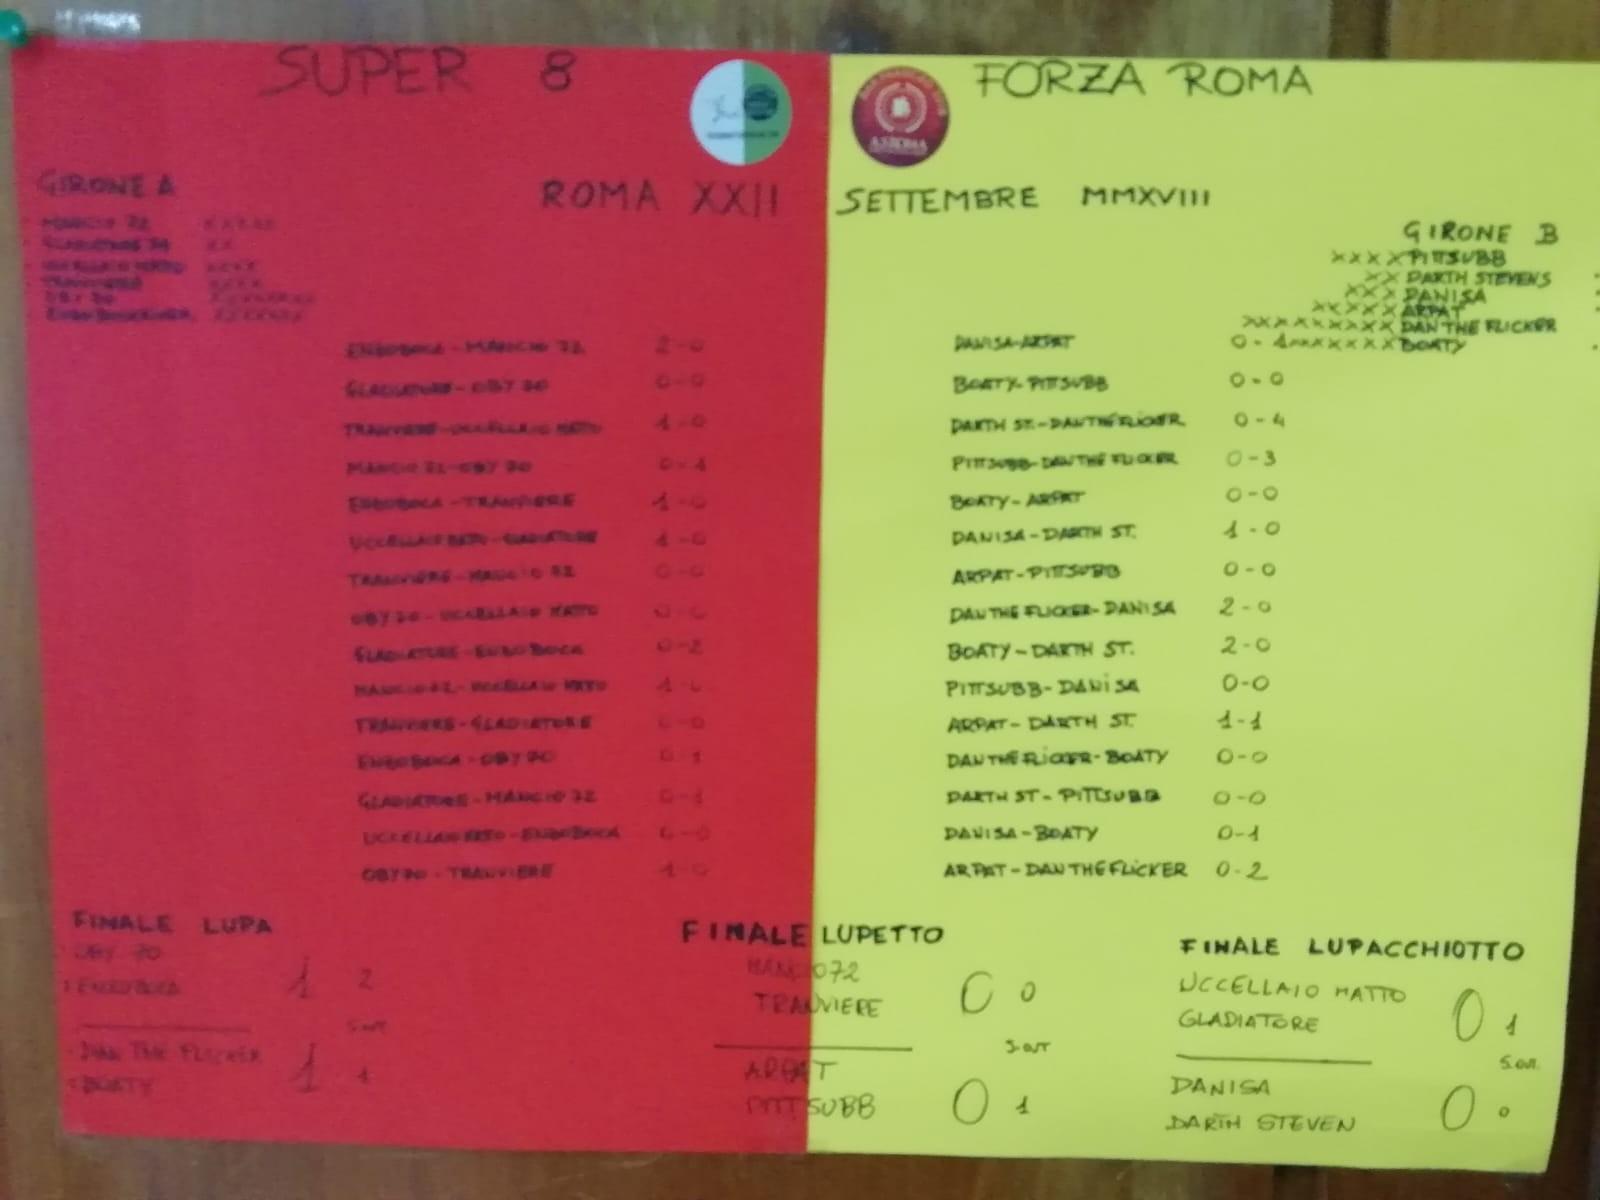 SUPER 8
FORZA ROMA
ROMA XXII SETTEMBRE MMXVIII
GIRONE A
MANCIO 72 XXXXX
GLADIATORE 74 XX
UCCELLAIO MATTO XXXX
TRANVIERE XXXX
OBY 70
ENZO BOCA
GIRONE B
XXXX PITTSUBB
XX DARTH STEVENS
XXX DANISA
XXXXX ARPAT
XXXXXXXXX DAN THE FLICKER
XXXXXXX BOATY
ENZOBOCA - MANCIO 72 2-0
GLADIATORE - OBY 70 0-0
TRANVIERE - UCCELLAIO MATTO 1-0
MANCIO 72 - OBY 70 0-1
ENZOBOCA - TRANVIERE 1-0
UCCELLAIO MATTO - GLADIATORE 1-0
TRANVIERE - MANCIO 72 0-0
OBY 70 - UCCELLAIO MATTO 0-0
GLADIATORE - ENZO BOCA 0-2
MANCIO 72 - UCCELLAIO MATTO 1-0
TRANVIERE - GLADIATORE 0-0
ENZOBOCA - OBY 70 0-1
GLADIATORE - MANCIO 72 0-1
UCCELLAIO MATTO - ENZOBOCA 0-0
OBY 70 - TRANVIERE 1-0
DANISA-ARPAT 0-1
BOATY-PITTSUBB 0-0
DARTH ST.-DAN THE FLICKER 0-4
PITTSUBB-DAN THE FLICKER 0-3
BOATY-ARPAT 0-0
DANISA-DARTH ST. 1-0
ARPAT-PITTSUBB 0-0
DAN THE FLICKER-DANISA 2-0
BOATY-DARTH ST. 2-0
PITTSUBB-DANISA 0-0
ARPAT-DARTH ST. 1-1
DAN THE FLICKER-BOATY 0-0
DARTH ST-PITTSUBB 0-0
DANISA-BOATY 0-1
ARPAT-DAN THE FLICKER 0-2
FINALE LUPA
OBY 70
ENZOBOCA 1 2
S.OUT
DAN THE FLICKER
BOATY 1 1
FINALE LUPETTO
MANCIO72
TRANVIERE 0 0
S.OUT
ARPAT
PITTSUBB 0 1
FINALE LUPACCHIOTTO
UCCELLAIO MATTO
GLADIATORE 0 1
S.OUT.
DANISA
DARTH STEVEN 0 0